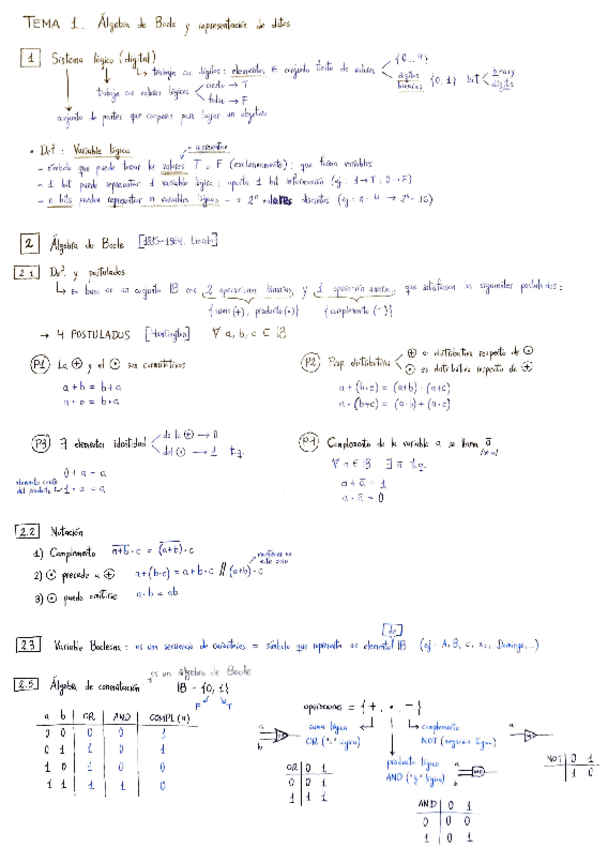 TEMA 1. Álgebra de Boole y representación de datos
1 Sistema lógico (digital)
↳ trabaja con dígitos: elementos ∈ conjunto finito de valores {0...9}
dígitos binarios {0, 1} bit binary digits
trabaja con valores lógicos cierto → T
falso → F
conjunto de partes que cooperan para lograr un objetivo
• Def.: Variable lógica
- símbolo que puede tomar los valores T o F (exclusivamente); que toman variables
- 1 bit puede representar 1 variable lógica; aporta 1 bit información (ej: 1→T; 0→F)
- n bits pueden representar n variables lógicas → 2ⁿ valores discretos (ej: n=4 → 2⁴=16)
2 Álgebra de Boole [1815-1864, Lincoln]
2.1 Def. y postulados
↳ se basa en un conjunto IB con 2 operaciones binarias, y 1 operación unaria, que satisfacen los siguientes postulados:
{suma (+), producto (•)} {complemento (‾)}
→ 4 POSTULADOS [Huntington] ∀ a, b, c ∈ IB
P1 La + y el • son conmutativos
a + b = b + a
a • b = b • a
P2 Prop. distributiva + es distributiva respecto de •
• es distributiva respecto de +
a + (b•c) = (a+b) • (a+c)
a • (b+c) = (a•b) + (a•c)
P3 ∃ elementos identidad de la + → 0
del • → 1 t.q.
0 + a = a
del producto 1 • a = a
P4 Complemento de la variable a se llama a̅
∀ a ∈ IB ∃ a̅ t.q.
a + a̅ = 1
a • a̅ = 0
2.2 Notación
1) Complemento
2) • precede a + a + (b•c) = a + b•c // (a+b)•c
3) • puede omitirse a • b = ab
2.3 Variable Booleana: es una secuencia de caracteres = símbolo que representa un elemento de IB (ej: A, B, c, x₁, Domingo,...)
2.5 Álgebra de conmutación es un álgebra de Boole
IB = {0, 1}
F T
a b OR AND COMPL(a)
0 0 0 0 1
0 1 1 0 1
1 0 1 0 0
1 1 1 1 0
operaciones = {+, •, ‾}
suma lógica
OR ("o" lógica)
complemento
NOT (negación lógica)
producto lógico
AND ("y" lógica)
OR 0 1
0 0 1
1 1 1
AND 0 1
0 0 0
1 0 1
NOT 0 1
1 0